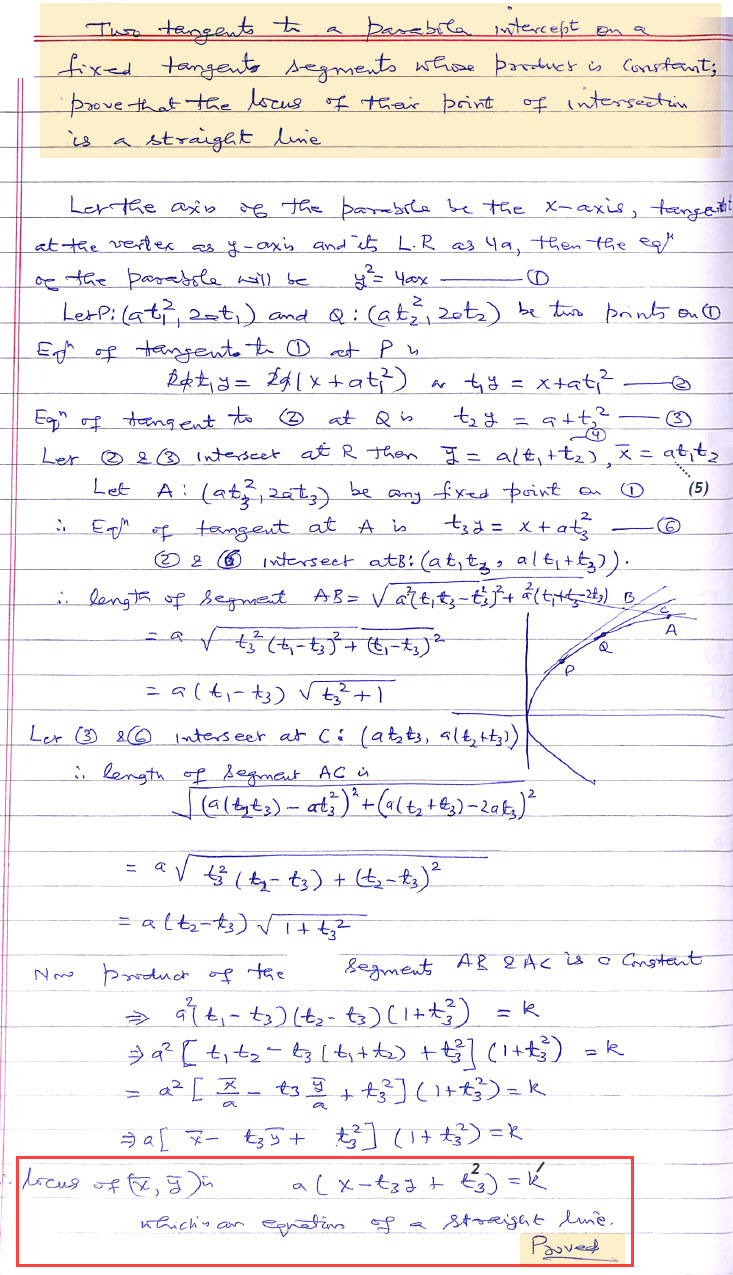 Two tangents to a parabola intercept on a
fixed tangents segments whose product is constant;
prove that the locus of their point of intersection
is a straight line
Let the axis of the parabola be the x-axis, tangent
at the vertex as y-axis and its L.R as 4a, then the eqⁿ
of the parabola will be y² = 4ax ——— ①
Let P: (at₁², 2at₁) and Q: (at₂², 2at₂) be two points on ①
Eqⁿ of tangents to ① at P is
2at₁y = 2a(x + at₁²) or t₁y = x + at₁² ——— ②
Eqⁿ of tangent to ② at Q is t₂y = a + t₂² ——— ③
Let ② & ③ intersect at R then ȳ = a(t₁ + t₂) ④, x̄ = at₁t₂
Let A: (at₃², 2at₃) be any fixed point on ① (5)
∴ Eqⁿ of tangent at A is t₃y = x + at₃² ——— ⑥
② & ⑥ intersect at B: (at₁t₃, a(t₁ + t₃)).
∴ length of segment AB = √a²(t₁t₃ - t₃²)² + a²(t₁ + t₃ - 2t₃)
B
C
A
Q
P
= a √t₃²(t₁ - t₃)² + (t₁ - t₃)²
= a(t₁ - t₃) √t₃² + 1
Let ③ & ⑥ intersect at C: (at₂t₃, a(t₂ + t₃))
∴ length of segment AC is
√(a(t₂t₃) - at₃²)² + (a(t₂ + t₃) - 2at₃)²
= a √t₃²(t₂ - t₃) + (t₂ - t₃)²
= a(t₂ - t₃) √1 + t₃²
Now product of the segments AB & AC is a constant
⇒ a²(t₁ - t₃)(t₂ - t₃)(1 + t₃²) = k
⇒ a²[t₁t₂ - t₃(t₁ + t₂) + t₃²](1 + t₃²) = k
= a²[x̄/a - t₃ ȳ/a + t₃²](1 + t₃²) = k
⇒ a[x̄ - t₃ȳ + t₃²](1 + t₃²) = k
∴ locus of (x̄, ȳ) is a(x - t₃y + t₃²) = k′
which is an equation of a straight line.
Proved